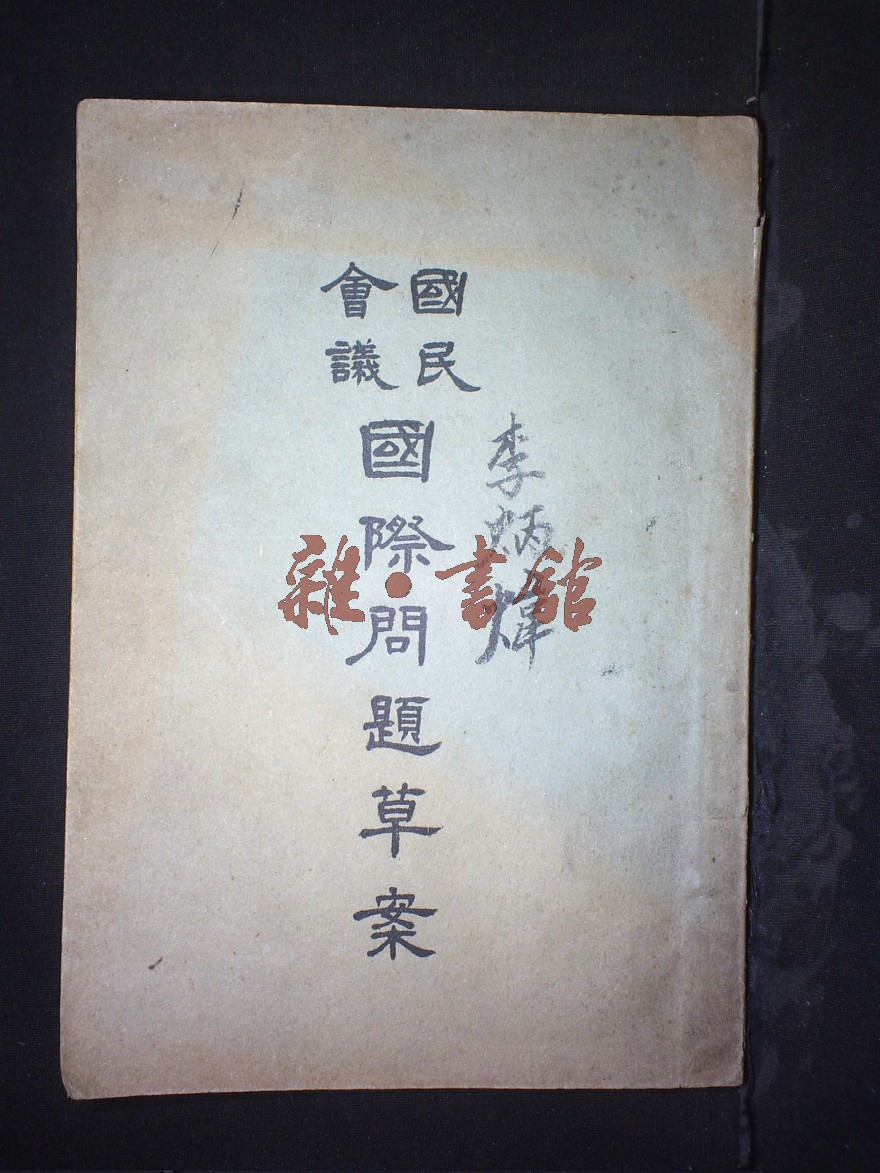 國民
會議
國際問題草案
李炳煒
雜·書館